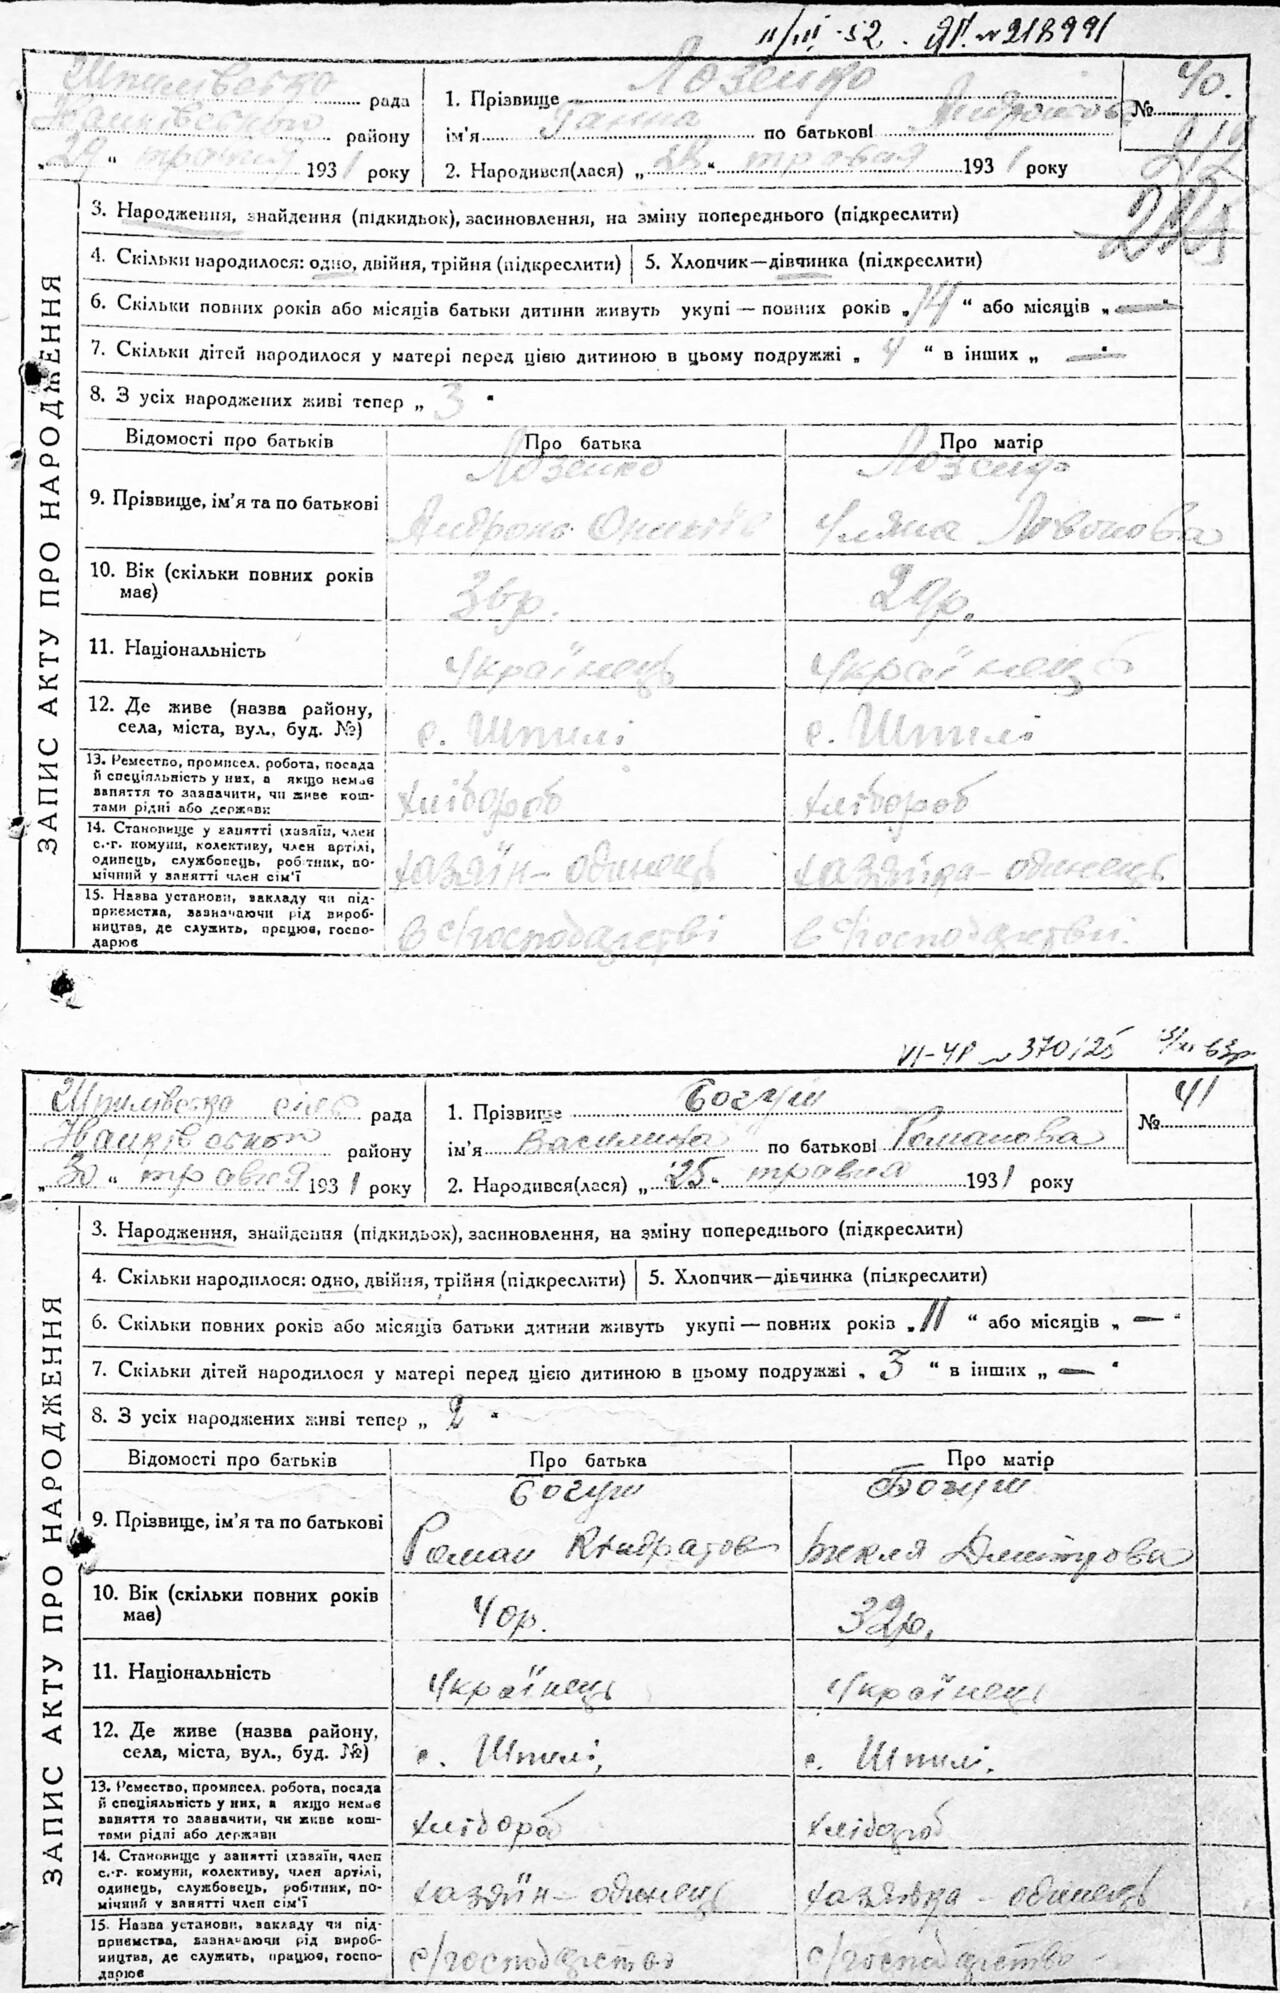 11/III-52. ЯП. № 218991
Шпилівська рада
Іванківського району
„29" травня 1931 року
1. Прізвище Лозенко
ім'я Ганна по батькові Андронова
2. Народився(лася) „28" травня 1931 року
№ 40.
212
ЗАПИС АКТУ ПРО НАРОДЖЕННЯ
3. Народження, знайдення (підкидьок), засиновлення, на зміну попереднього (підкреслити)
4. Скільки народилося: одно, двійня, трійня (підкреслити)
5. Хлопчик—дівчинка (підкреслити)
6. Скільки повних років або місяців батьки дитини живуть укупі — повних років „14" або місяців „—"
7. Скільки дітей народилося у матері перед цією дитиною в цьому подружжі „4" в інших „—"
8. З усіх народжених живі тепер „3"
Відомості про батьків Про батька Про матір
9. Прізвище, ім'я та по батькові
Лозенко Лозенко
Андронъ Уляна
10. Вік (скільки повних років має)
36р. 29р.
11. Національність Українець Українець
12. Де живе (назва району, села, міста, вул., буд. №)
с. Шпилі с. Шпилі
13. Ремество, промисел, робота, посада й спеціяльність у них, а якщо немає заняття то зазначити, чи живе коштами рідні або держави
хлібороб хлібороб
14. Становище у занятті (хазяїн, член с.-г. комуни, колективу, член артілі, одинець, службовець, робітник, помічний у занятті член сім'ї
хазяїн — одинець хазяйка — одинець
15. Назва установи, закладу чи підприємства, зазначаючи рід виробництва, де служить, працює, господарює
в с/господарстві в с/господарстві.
VI-ЧР № 370125
Шпилівська сіль рада
Іванківського району
„30" травня 1931 року
1. Прізвище Богуш
ім'я Василина по батькові Романова
2. Народився(лася) „25" травня 1931 року
№ 41
ЗАПИС АКТУ ПРО НАРОДЖЕННЯ
3. Народження, знайдення (підкидьок), засиновлення, на зміну попереднього (підкреслити)
4. Скільки народилося: одно, двійня, трійня (підкреслити)
5. Хлопчик—дівчинка (підкреслити)
6. Скільки повних років або місяців батьки дитини живуть укупі — повних років „11" або місяців „—"
7. Скільки дітей народилося у матері перед цією дитиною в цьому подружжі „3" в інших „—"
8. З усіх народжених живі тепер „2"
Відомості про батьків Про батька Про матір
9. Прізвище, ім'я та по батькові
Богуш Богуш
Роман Кіндратов Текля Дмитрова
10. Вік (скільки повних років має)
40р. 32р.
11. Національність Українець Українець
12. Де живе (назва району, села, міста, вул., буд. №)
с. Шпилі, с. Шпилі.
13. Ремество, промисел, робота, посада й спеціяльність у них, а якщо немає заняття то зазначити, чи живе коштами рідні або держави
хлібороб хлібороб
14. Становище у занятті (хазяїн, член с.-г. комуни, колективу, член артілі, одинець, службовець, робітник, помічний у занятті член сім'ї
хазяїн — одинець хазяйка — одинець
15. Назва установи, закладу чи підприємства, зазначаючи рід виробництва, де служить, працює, господарює
с/господарство с/господарство